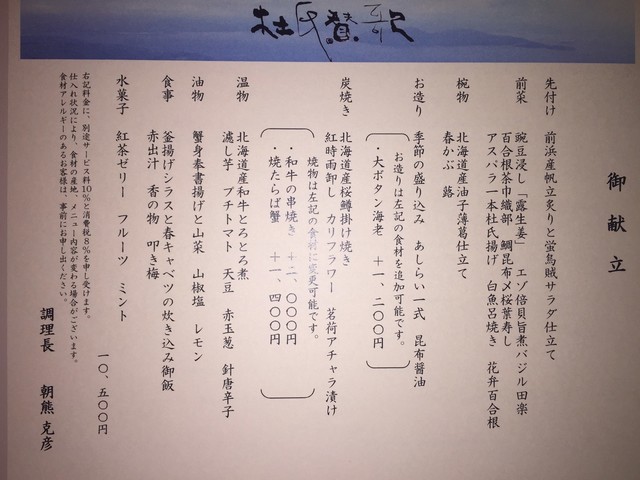 杜氏賛歌
御献立
先付け 前浜産帆立炙りと蛍烏賊サラダ仕立て
前菜 豌豆浸し「露生姜」 エゾ倍貝旨煮バジル田楽
百合根茶巾織部 鯛昆布〆桜葉寿し
アスパラ一本杜氏揚げ 白魚呂焼き 花弁百合根
椀物 北海道産油子薄葛仕立て
春かぶ 蕗
お造り 季節の盛り込み あしらい一式 昆布醤油
お造りは左記の食材を追加可能です。
・大ボタン海老 +一、二〇〇円
炭焼き 北海道産桜鱒掛け焼き
紅時雨卸し カリフラワー 茗荷アチャラ漬け
焼物は左記の食材に変更可能です。
・和牛の串焼き +二、〇〇〇円
・焼たらば蟹 +一、四〇〇円
温物 北海道産和牛とろとろ煮
濾し芋 プチトマト 天豆 赤玉葱 針唐辛子
油物 蟹身奉書揚げと山菜 山椒塩 レモン
食事 釜揚げシラスと春キャベツの炊き込み御飯
赤出汁 香の物 叩き梅
水菓子 紅茶ゼリー フルーツ ミント
一〇、五〇〇円
右記料金に、別途サービス料10%と消費税8%を申し受けます。
仕入れ状況により、食材の産地、メニュー内容が変わる場合がございます。
食材アレルギーのあるお客様は、事前にお申し出ください。
調理長 朝熊 克彦